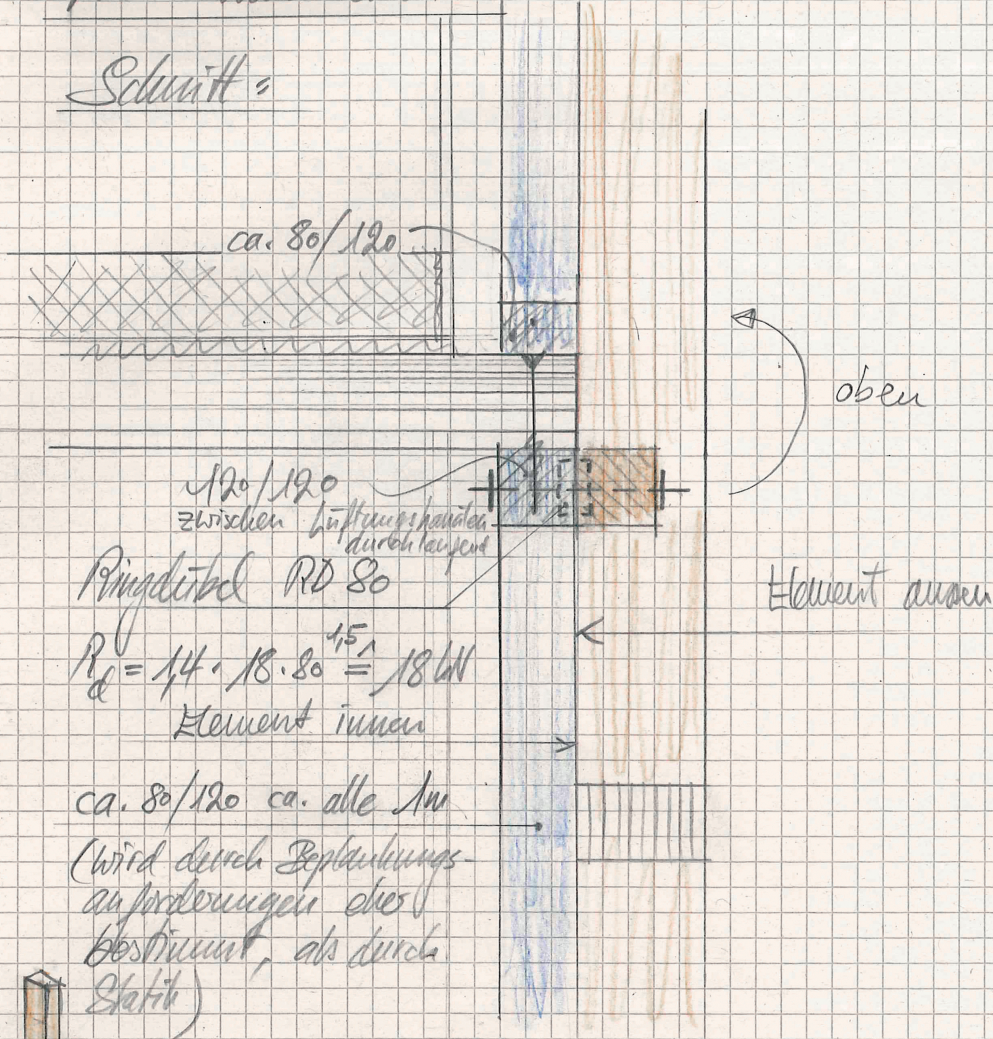 Schnitt:
ca. 80/120
oben
120/120
zwischen Lüftungskanälen
durchlaufend
Ringdübel RD 80
Element aussen
R_d = 1,4 · 18 · 80^1,5 ≙ 18 kN
Element innen
ca. 80/120 ca. alle 1m
(wird durch Beplankungs-
anforderungen eher
bestimmt, als durch
Statik)